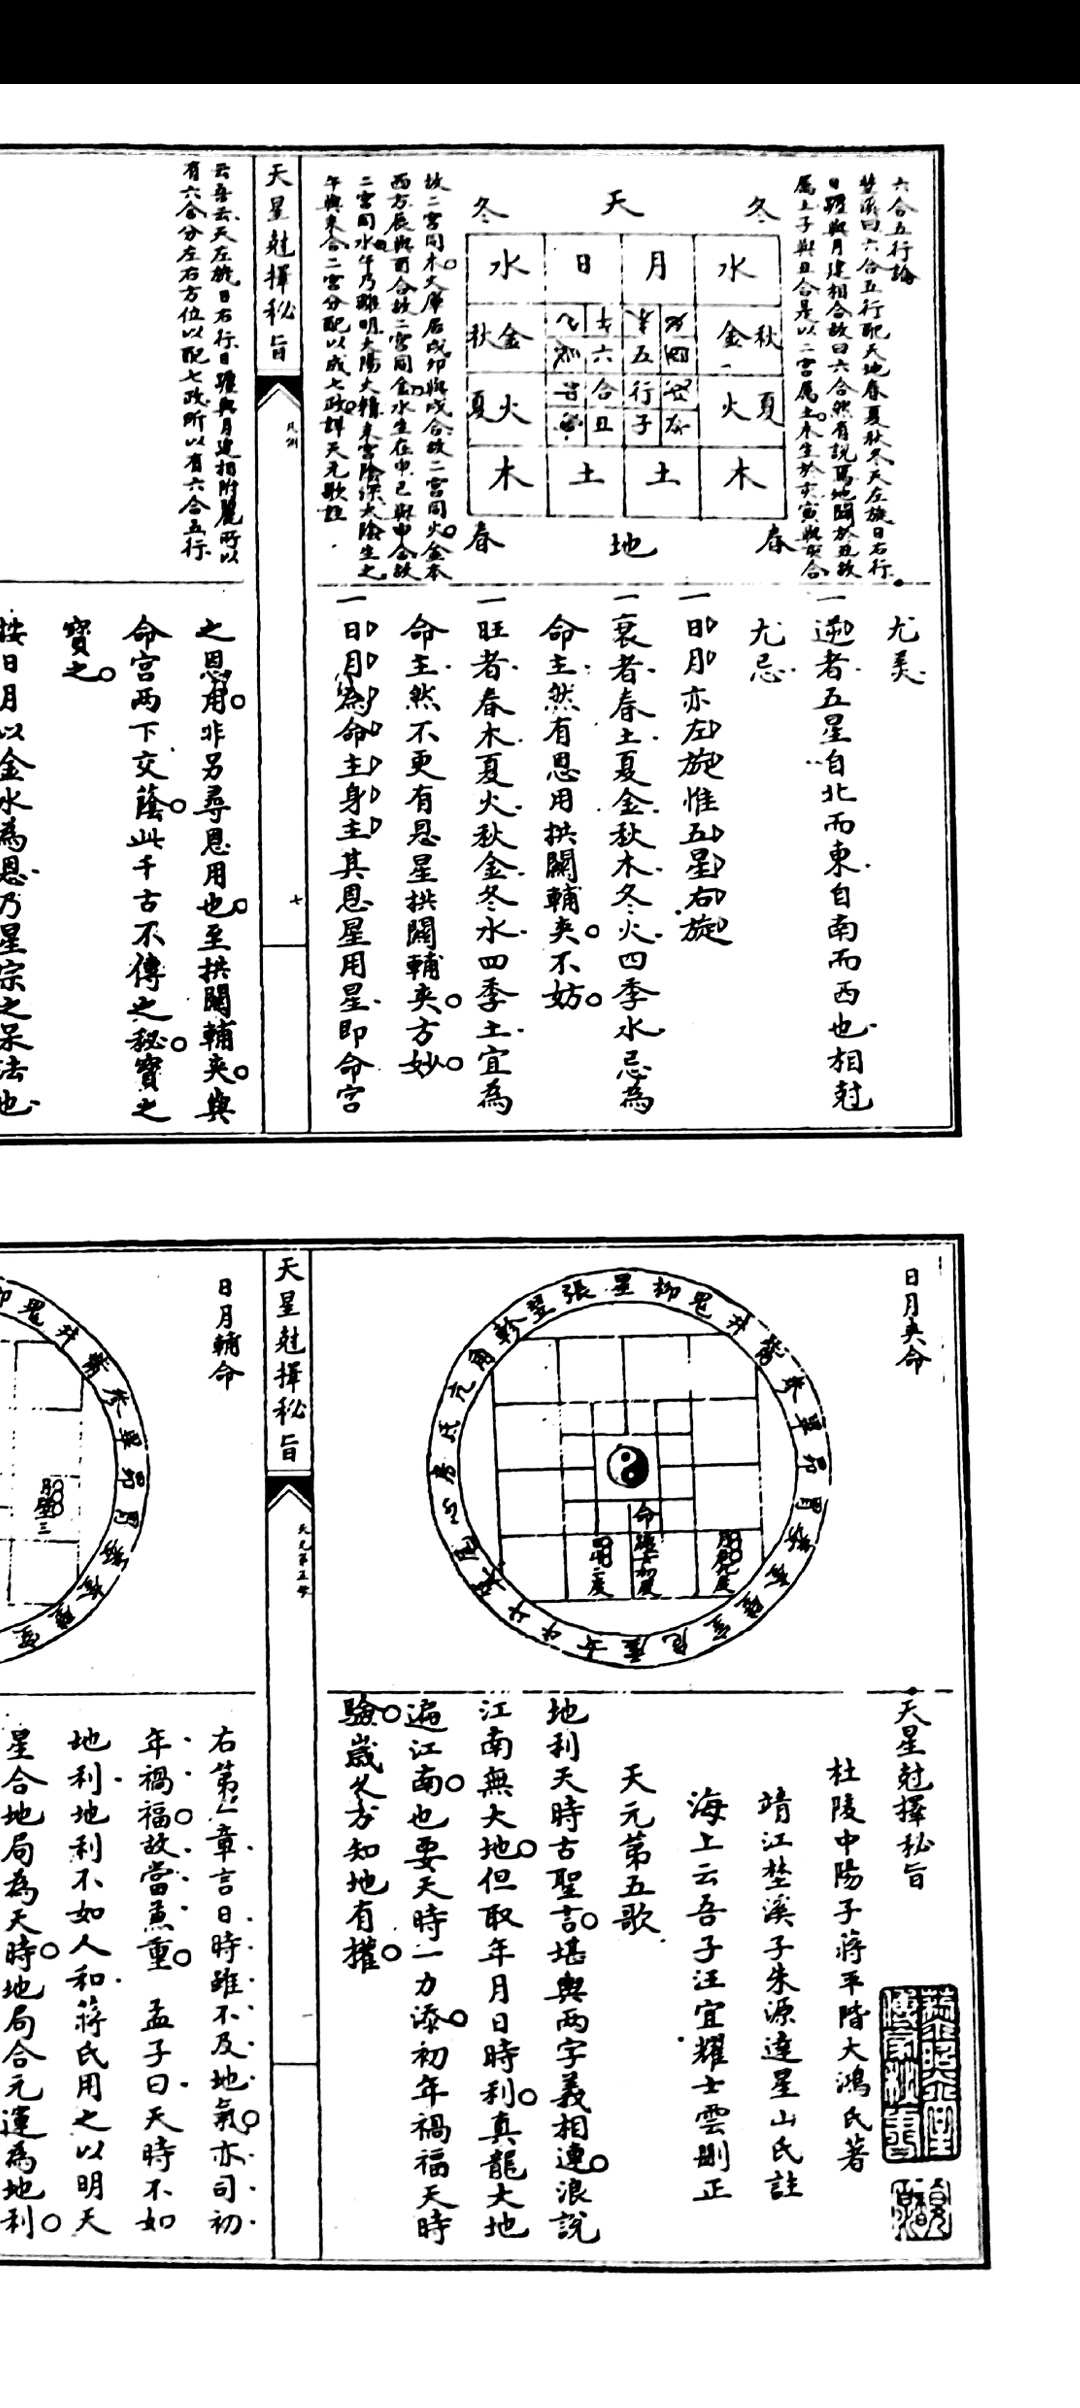 六合五行論
埜溪曰六合五行配天地春夏秋冬天左旋日右行
日躔與月建相合故曰六合然有說焉地闢於丑故
屬土子與丑合是以二宮屬土木生於亥寅與亥合
冬 天 冬
水 日 月 水
秋 金 金 秋
六 五
合 行
丑 子
夏 火 火 夏
木 土 土 木
春 地 春
故二宮同木火庫居戌卯與戌合故二宮同火金本
西方辰與酉合故二宮同金水生在申巳與申合故
二宮同水午乃離明太陽火精未宮陰深太陰生之
午與未合二宮分配以成七政詳天元歌註
尤美
一逆者五星自北而東自南而西也相尅
尤忌
一日月亦左旋惟五星右旋
一衰者春土夏金秋木冬火四季水忌為
命主然有恩用拱關輔夾不妨
一旺者春木夏火秋金冬水四季土宜為
命主然不更有恩星拱關輔夾方妙
一日月為命主身主其恩星用星即命宮
天星尅擇秘旨
凡例
七
云吾云天左旋日右行日躔與月建相附麗所以
有六合分左右方位以配七政所以有六合五行
之恩用非另尋恩用也至拱關輔夾與
命宮兩下交蔭此千古不傳之秘寶之
寶之
按日月以金水為恩乃星宗之呆法也
日月夾命
張星柳鬼井觜參畢昴胃婁奎壁室危虛女牛斗箕尾心房氐亢角軫翌
命
天星尅擇秘旨
杜陵中陽子蔣平階大鴻氏著
靖江埜溪子朱源達星山氏註
海上云吾子汪宜耀士雲刪正
天元第五歌
地利天時古聖言堪輿兩字義相連浪說
江南無大地但取年月日時利真龍大地
遍江南也要天時一力添初年禍福天時
驗歲久方知地有權
天星尅擇秘旨
天元第五歌
一
日月輔命
鬼井觜參畢昴胃婁奎壁室
右第一章言日時雖不及地氣亦司初
年禍福故當兼重 孟子曰天時不如
地利地利不如人和蔣氏用之以明天
星合地局為天時地局合元運為地利